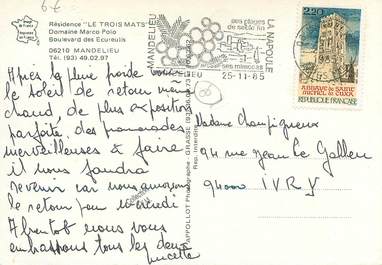 6€
Résidence "LE TROIS MATS"
Domaine Marco Polo
Boulevard des Ecureuils
06210 MANDELIEU
Tél. (93) 49.02.97
MANDELIEU
LA NAPOULE
ses plages
de sable fin
ses mimosas
25-11-85
2,20
ABBAYE DE SAINT
MICHEL DE CUXA
RÉPUBLIQUE FRANÇAISE
APPOLLOT Photographe - GRASSE
Après la pluie froide
le soleil de retour
chaud, de plus exposition
parfaite, des promenades
merveilleuses à faire
il nous faudra
revenir car nous amorçons
le retour pour mercredi
A bientôt nous vous
embrassons tous les deux
Lucette
Madame Champigneux
14 rue Jean Le Galleu
94000 IVRY